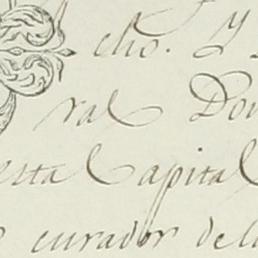 cho. Y
ral Don
esta Capital
curador de la